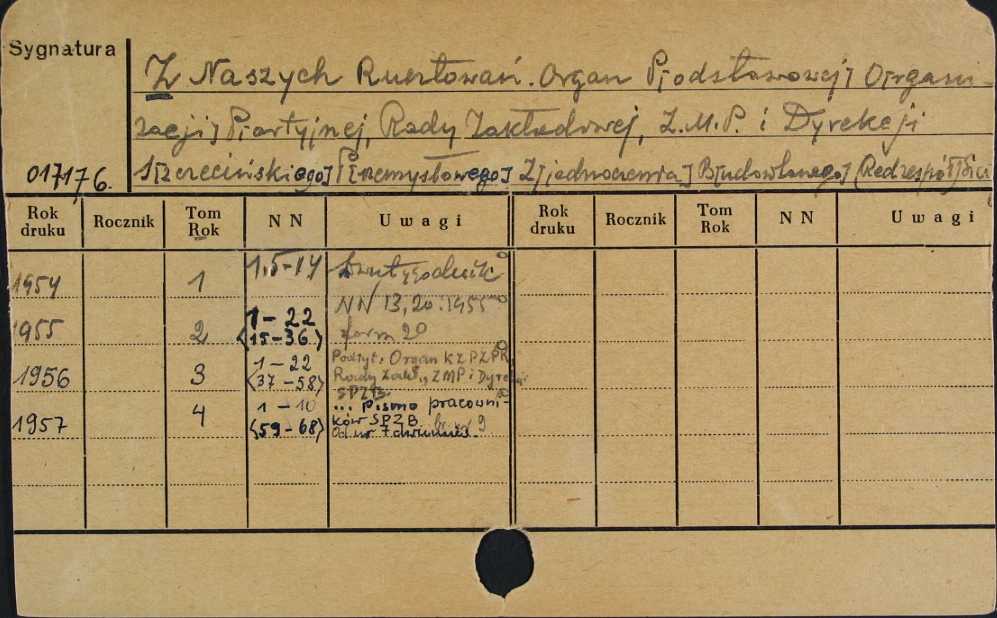 Sygnatura
Z Naszych Rusztowań. Organ P[odstawowej] O[rgani-
zacji] P[artyjnej], Rady Zakładowej, Z.M.P. i Dyrekcji
017176.
S[zczecińskiego] P[rzemysłowego] Z[jednoczenia] B[udowlanego] (Red. zespół)
Rok druku Rocznik Tom Rok NN Uwagi Rok druku Rocznik Tom Rok NN Uwagi
1954 1 1.5-14 Dwutygodnik
NN 13, 20. 1955
1955 2 1-22 <15-36> form 20
1956 3 1-22 <37-58> Podtyt: Organ KZ PZPR,
Rady Zakł., ZMP i Dyrekcji
SPZB.
1957 4 1-10 <59-68> ... Pismo pracowni-
ków SPZB 9
Od nr 7 dwumies.